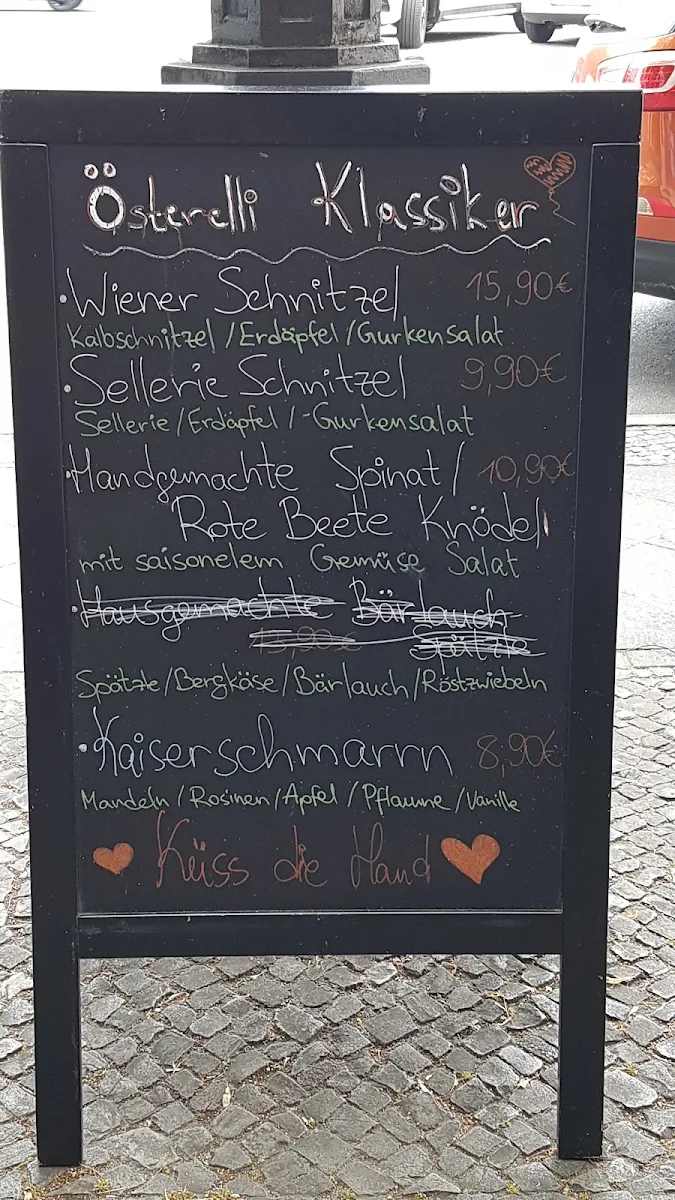 Österelli Klassiker
• Wiener Schnitzel 15,90€
Kalbschnitzel / Erdäpfel / Gurkensalat
• Sellerie Schnitzel 9,90€
Sellerie / Erdäpfel / - Gurkensalat
• Handgemachte Spinat / 10,90€
Rote Beete Knödel
mit saisonelem Gemüse Salat
• Hausgemachte Bärlauch
Spätzle
Spätzle / Bergkäse / Bärlauch / Röstzwiebeln
• Kaiserschmarrn 8,90€
Mandeln / Rosinen / Apfel / Pflaume / Vanille
Küss die Hand